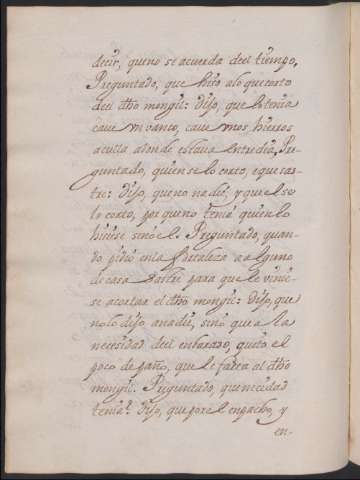 decir, que no se acuerda del tiempo.
Preguntado, que hizo a lo que corto
del dho mongil: Dijo, que lo tenia
cave un vanco, cave unos hierros
aculla adonde estava entredia. Pre-
guntado, quien se lo corto, e que sas-
tre: Dijo, que no nadie; y que el se
lo corto, por que no tenia quien lo
hiciese sino el. Preguntado, quan-
do pidio en la fortaleza a alguno
de casa sastre para que le vinie-
se acortar el dho mongil: Dijo, que
no lo dijo a nadie, sino que a la
necesidad del enforrado, quito el
poco de paño, que le falta al dho
mongil. Preguntado, que necesidad
tenia? Dijo, que por el empacho, y
en-